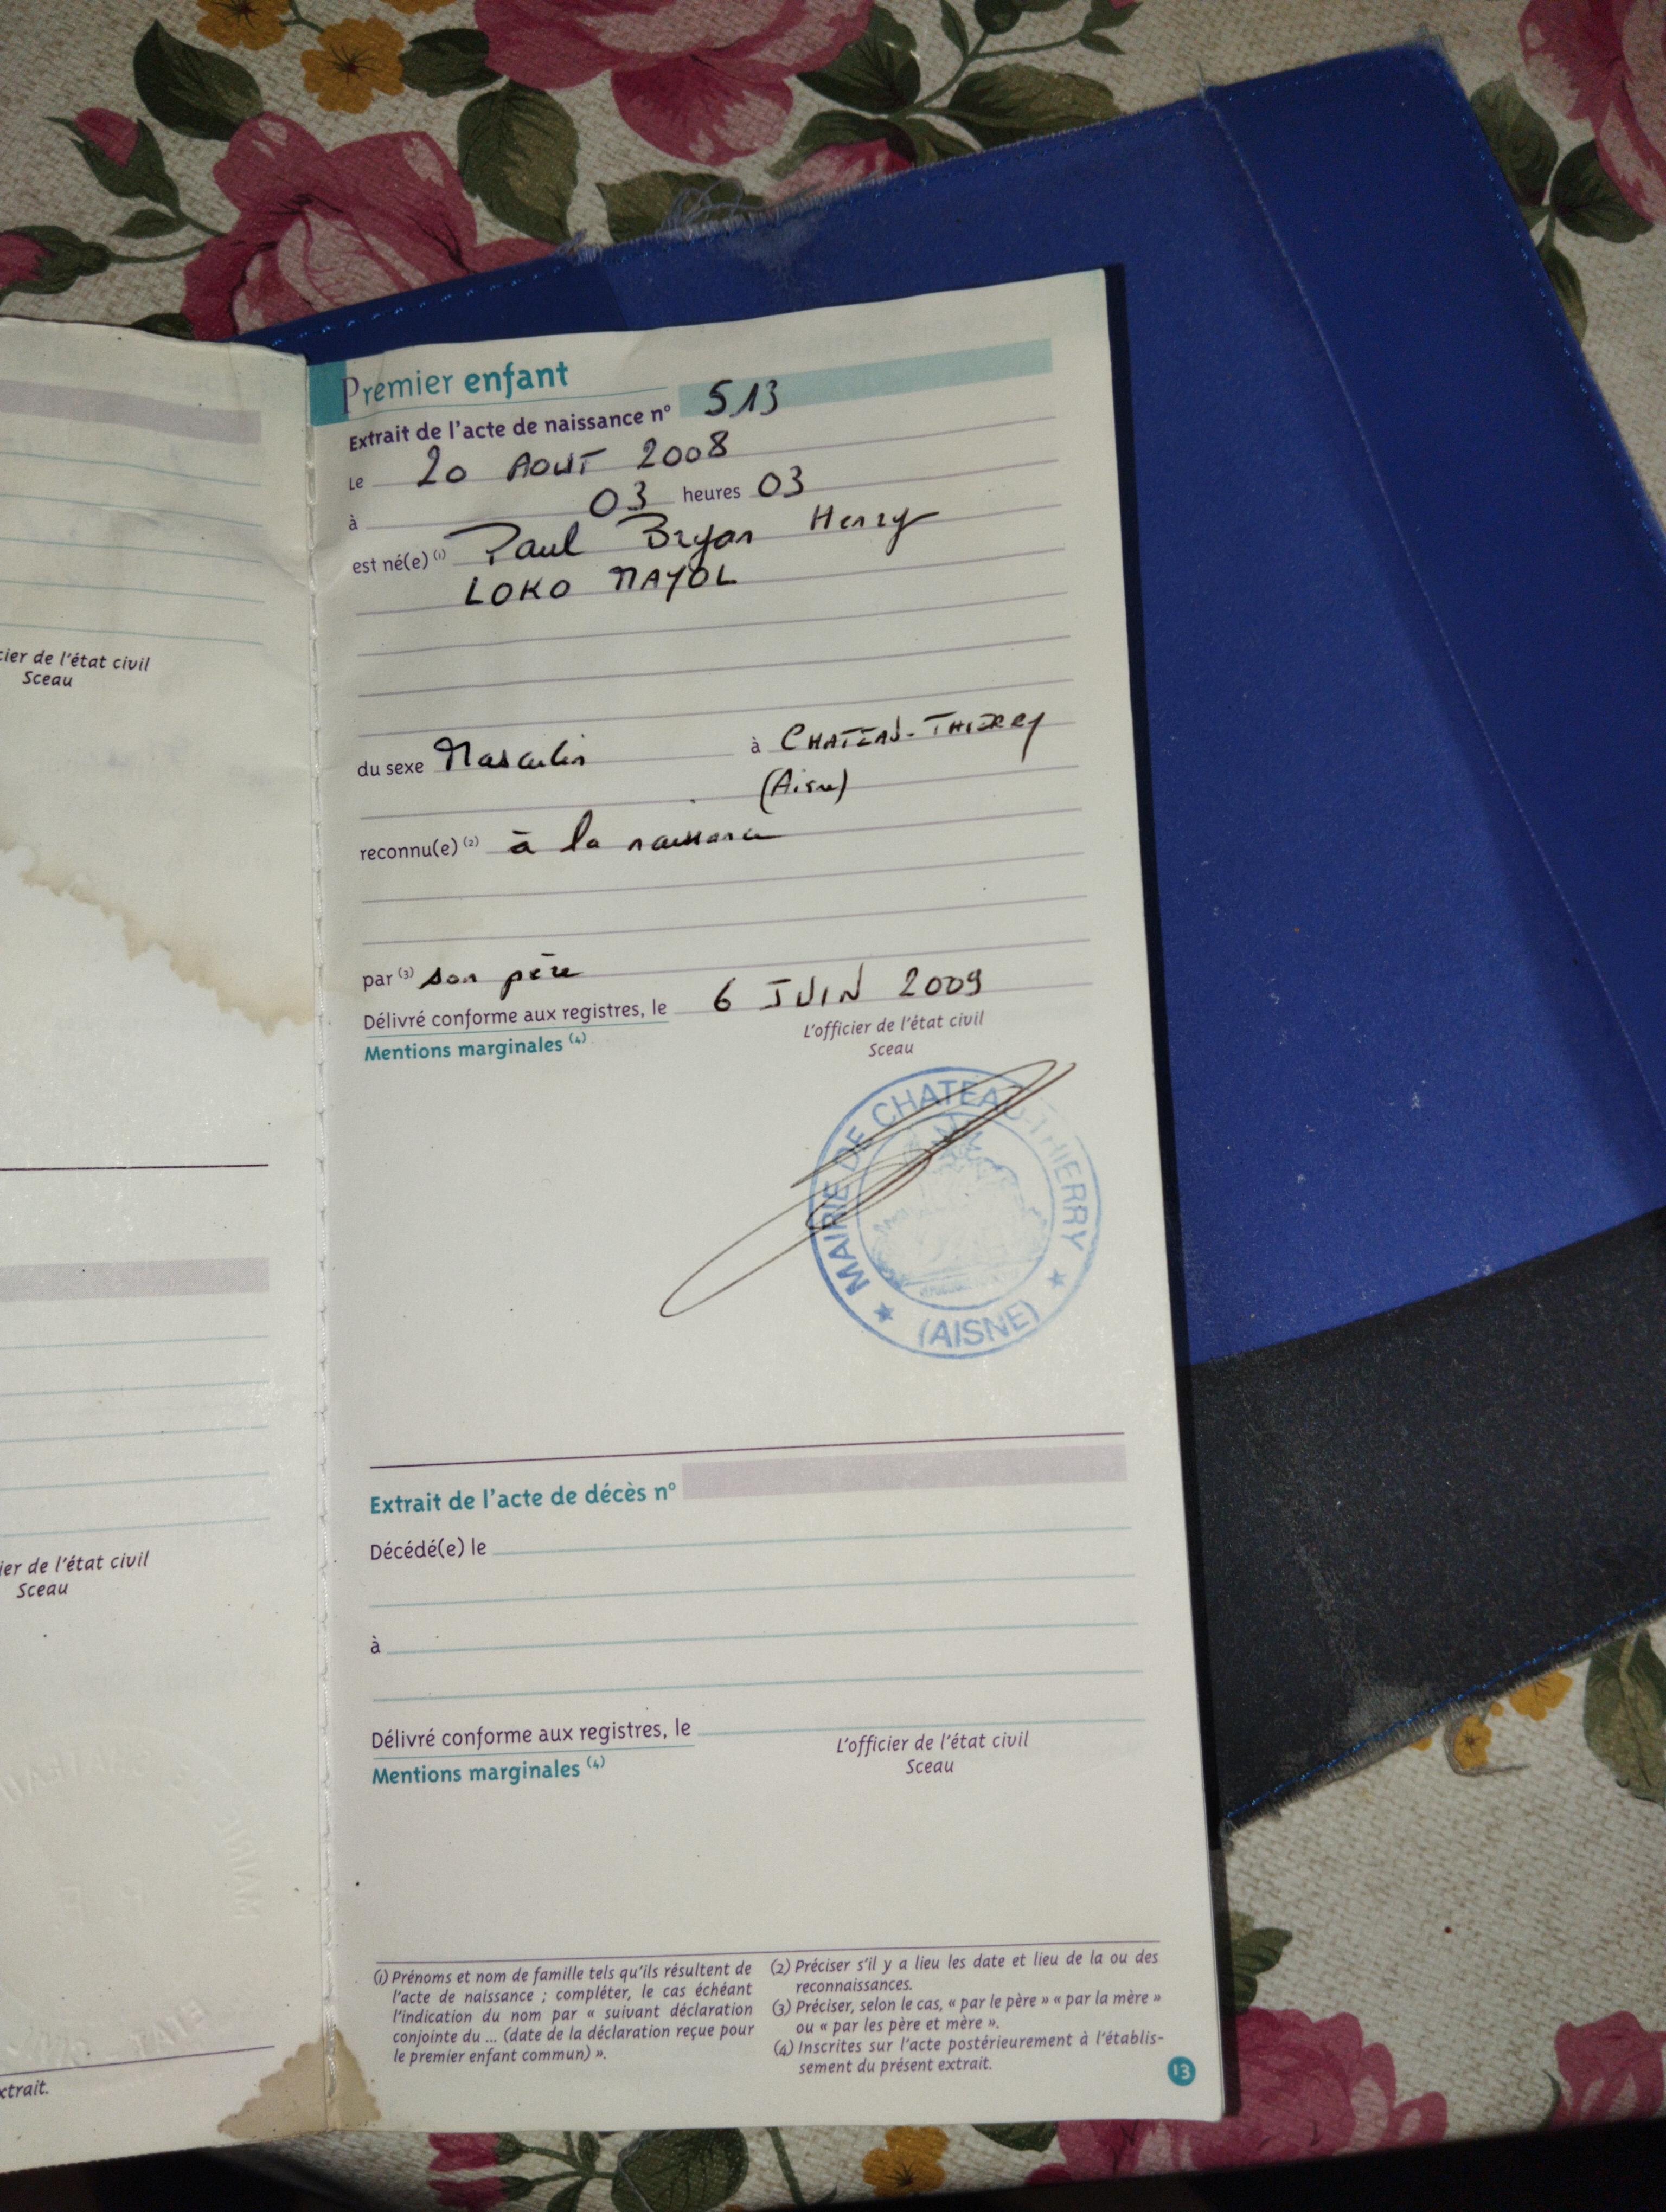 Premier enfant
Extrait de l'acte de naissance n° 513
Le 20 AOUT 2008
à 03 heures 03
est né(e) (1) Paul Bryan Henry
LOKO MAYOL
du sexe Masculin à CHATEAU-THIERRY
(Aisne)
reconnu(e) (2) à la naissance
par (3) son père
Délivré conforme aux registres, le 6 JUIN 2009
Mentions marginales (4)
L'officier de l'état civil
Sceau
MAIRIE DE CHATEAU-THIERRY
(AISNE)
Extrait de l'acte de décès n°
Décédé(e) le
à
Délivré conforme aux registres, le
Mentions marginales (4)
L'officier de l'état civil
Sceau
(1) Prénoms et nom de famille tels qu'ils résultent de
l'acte de naissance ; compléter, le cas échéant
l'indication du nom par « suivant déclaration
conjointe du ... (date de la déclaration reçue pour
le premier enfant commun) ».
(2) Préciser s'il y a lieu les date et lieu de la ou des
reconnaissances.
(3) Préciser, selon le cas, « par le père » « par la mère »
ou « par les père et mère ».
(4) Inscrites sur l'acte postérieurement à l'établis-
sement du présent extrait.
13
cier de l'état civil
Sceau
ier de l'état civil
Sceau
xtrait.